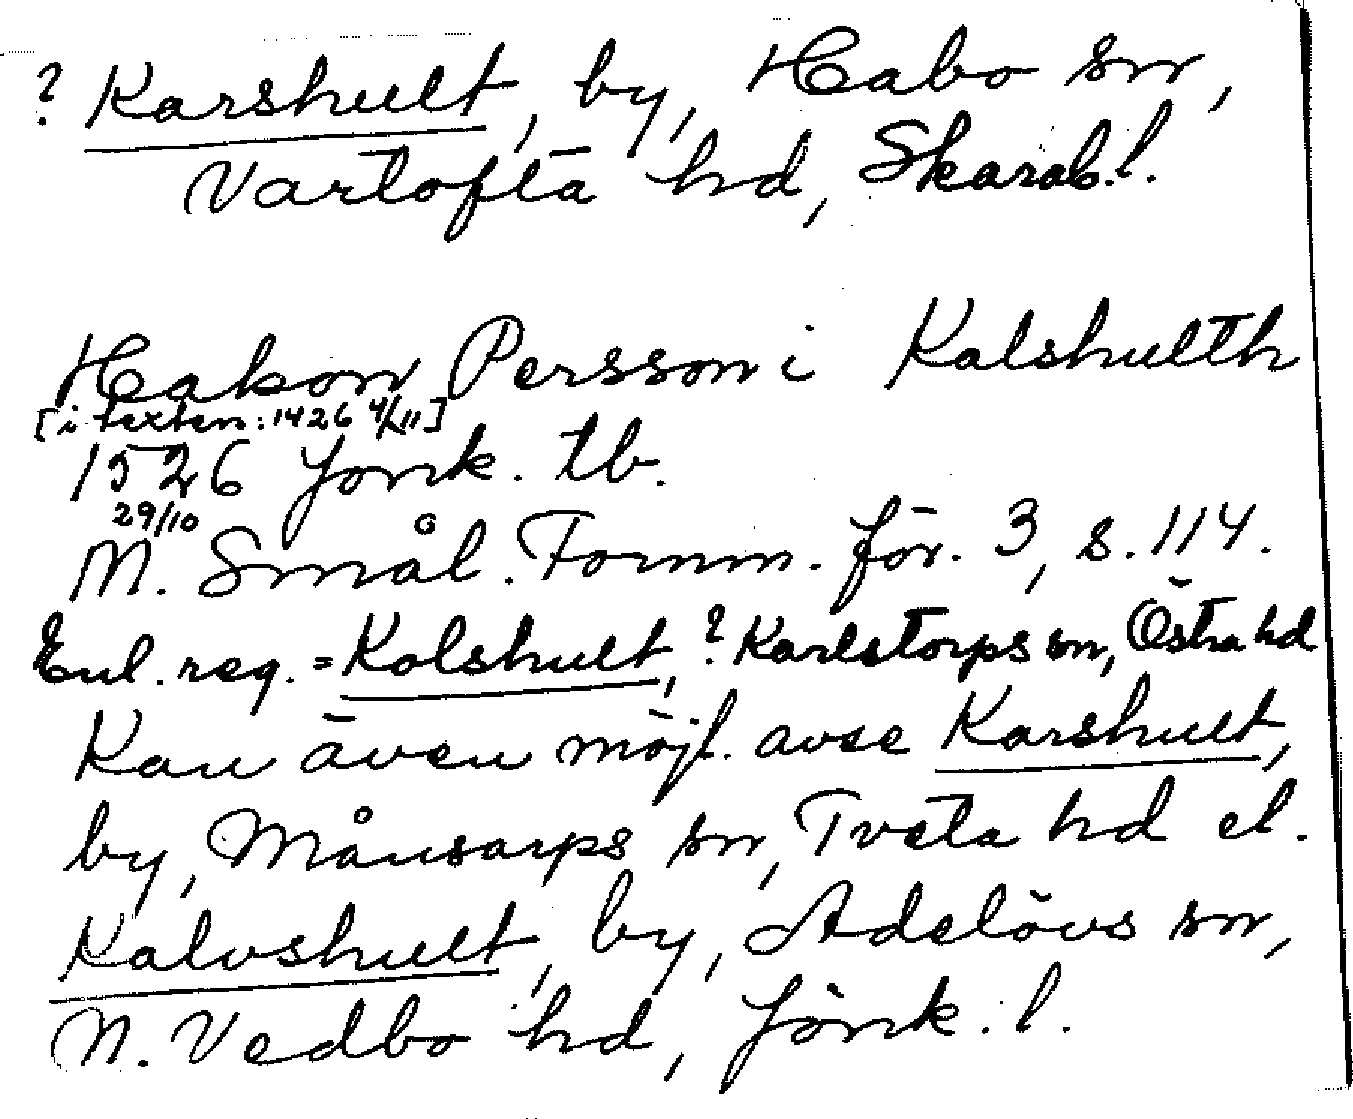 ? Karshult, by, Habo sn,
Vartofta hd, Skarab.l.
Hakon Persson i Kalshulth
[i texten: 1426 4/11]
1526 Jönk. tb.
29/10
M. Smål. Fornm. för. 3, s. 114.
Enl. reg. = Kolshult, ? Karlstorps sn, Östra hd
Kan även möjl. avse Karshult,
by, Månsarps sn, Tveta hd el.
Kalvshult, by, Adelövs sn,
N. Vedbo hd, Jönk. l.